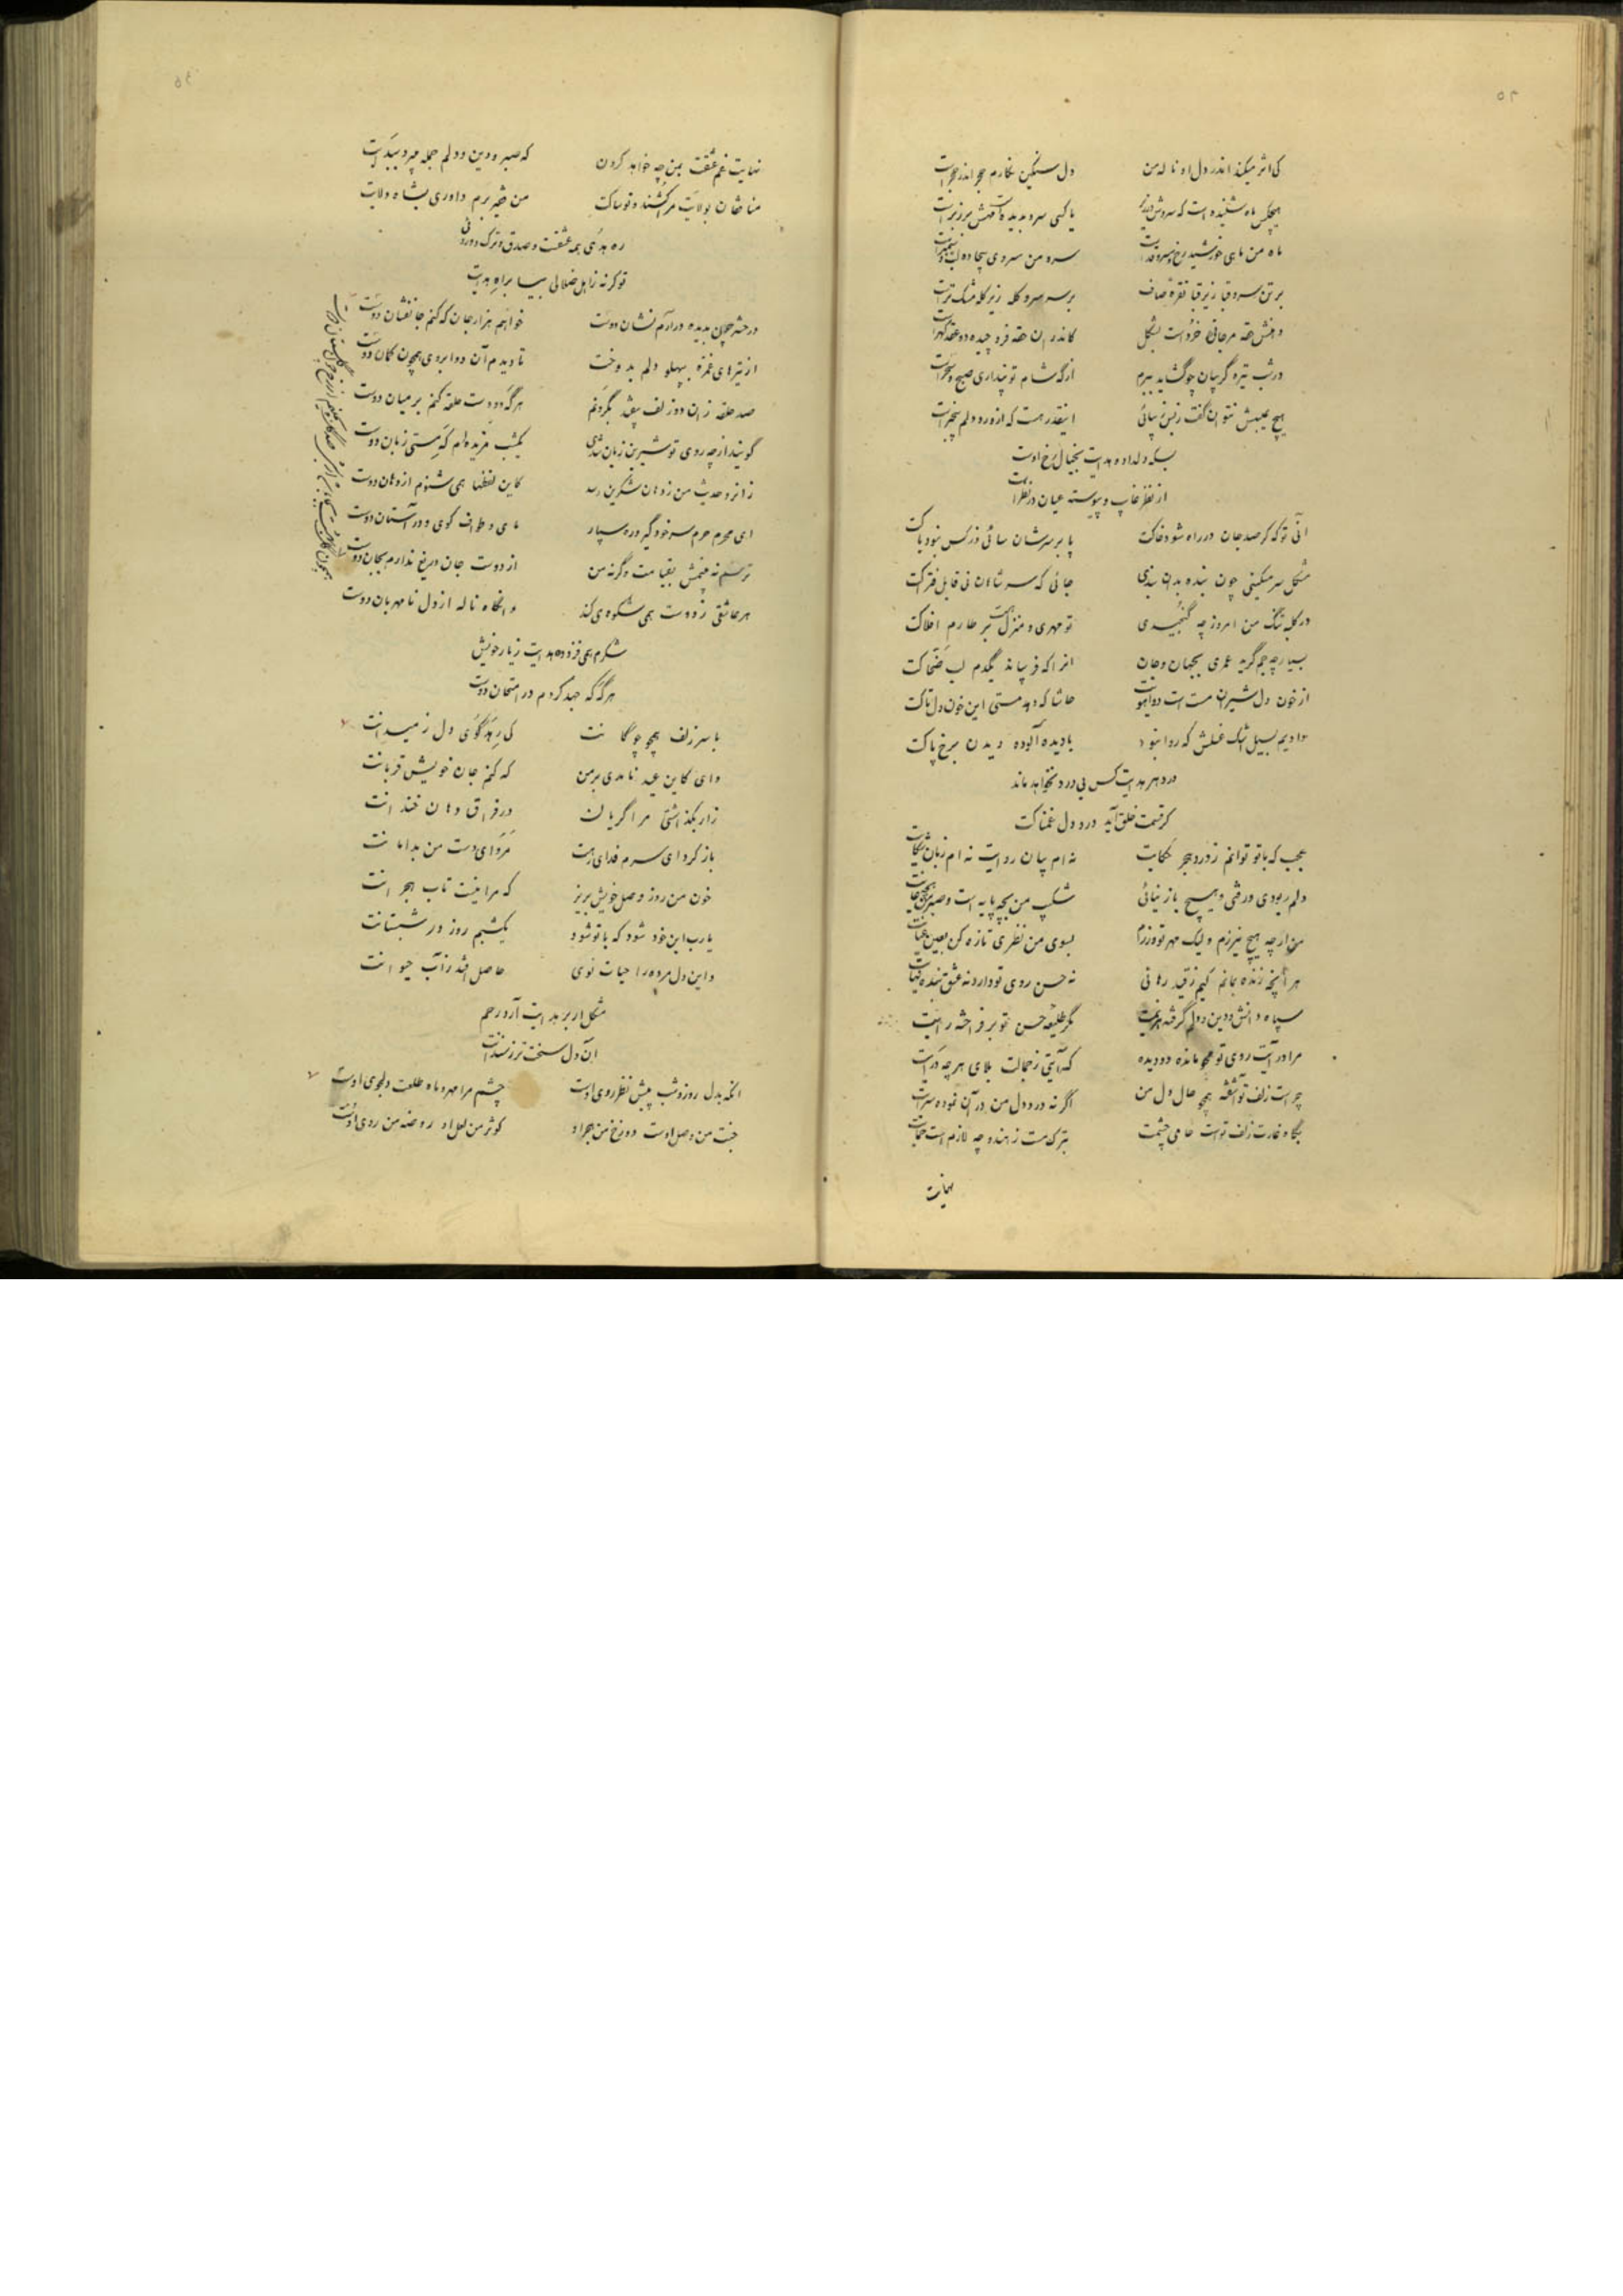 ۵۲
کی اثر میکند اندر دل او ناله من دل سنگین نگارم حجر اندر حجر است
هیچکس ماه شنیده است که سروش یا کسی سرو بدیده است
ماه من ماهی خورشید رخ و سرو سرو من سروی بیجاده لب و
بر تن سرو قبا زیر قبا نقره صاف بر سر سرو کله زیر کله مشک تر است
دهنش حقه مرجانی خرد است بشکل کاندران حقه فرو چیده دو عقد گهر است
در شب تیره گریبان چو گشاید ببرم از گه شام تو پنداری صبح و سحر است
هیچ عیبش نتوان گفت زیبائی اینقدر هست که از درد دلم بیخبر است
بسکه دلداده هدایت بخیال رخ اوست
از نظر غایب و پیوسته عیان در نظر است
آنی تو که گر صد جان در راه شود خاکت پا بر سر شان سائی وز کس نبود باکت
مشکل سر مسکینی چون بنده بدان بندی جائی که سر شاهان نی قابل فتراکت
در کلبه تنگ من امروز چه گنجیدی تو مهری و منزل هست بر طارم افلاکت
بسیار چه جم گرید عمری بجهان و جان انرا که فریباند یکدم لب ضحاکت
از خون دل شیران مست است دو آهوت حاشا که دهد مستی این خون دل تاکت
دادیم بسیل اشک غسلش که روا نبود با دیده آلوده دیدن برخ پاکت
در دهر هدایت کس بی درد نخواهد ماند
گر قسمت خلق آید درد دل غمناکت
عجب که با تو توانم ز درد هجر حکایت نه ام بیان روایت نه ام زبان شکایت
دلم ربودی و رفتی و هیچ باز نیائی شکیب من بچه پایه است و صبر من
من ارچه هیچ نیرزم ولیک مهر تو ورزم بسوی من نظری تازه کن بعین عنایت
هر آنچه زنده بمانم کیم ز قید رهانی نه حسن روی تو دارد نه عشق بنده نهایت
سپاه دانش و دین و دلم گرفته هزیمت مگر طلیعه حسن تو برفراخته رایت
مرا در آیت روی تو محو مانده دو دیده که آیتی ز جمالت بلای هر چه در آیت
چراست زلف تو آشفته همچو حال دل من اگر نه درد دل من در آن نموده سرایت
بگاه غارت زلف تو است حامی چشمت بترک مست ز هندو چه لازم است حمایت
نهایت
نهایت غم عشقت بمن چه خواهد کردن که صبر و دین و دلم جمله
منافقان بولایت مرا کشند و تو ساکت من خیره برم داوری بشاه ولایت
ره هدی همه عشقت و صدق و ترک
تو گر نه ز اهل ضلالی بیا براه هدایت
در حشر چون بدیده درآرم نشان دوست خواهم هزار جان که کنم جانفشان دوست
از تیرهای غمزه بپهلو دلم بدوخت تا دیدم آن دو ابروی همچون کمان دوست
صد حلقه زان دو زلف بگردنم هر گه دو دست حلقه کنم بر میان دوست
گویند از چه روی تو شیرین زبان شدی یکشب مزیده ام که مستی زبان دوست
زانرو حدیث من ز دهان شکرین رسد کاین لفظها همی شنوم از دهان دوست
ای محرم حرم سر خود گیر و ره سپار مای و طواف کوی و در آستان دوست
ترسم نه بینمش بقیامت وگرنه من از دوست جان دریغ ندارم بجان دوست
هر عاشقی ز دوست همی شکوه می کند و انگاه ناله از دل نامهربان دوست
شکرم همی فزوده هدایت ز یار خویش
هر گه که جهد کردم در امتحان دوست
با سر زلف همچو چوگانت کی رهد گوی دل ز میدانت
وای کاین عید نامدی بر من که کنم جان خویش قربانت
زار بگذاشتی مرا گریان در فراق دهان خندانت
باز گرد ای سرم فدای رهت مرو ای دست من بدامانت
خون من روز وصل خویش بریز که مرا نیست تاب هجرانت
یا رب این خود شود که با تو شود یکشبم روز در شبستانت
و این دل مرده را حیات نوی حاصل افتد ز آب حیوانت
مشکل ار بر هدایت آرد رحم
آن دل سخت تر ز سندانت
آنکه بدل روز و شب پیش نظر روی اوست چشم مرا مهر و ماه طلعت دلجوی اوست
جنت من وصل اوست دوزخ من هجر او کوثر من لعل او روضه من روی اوست